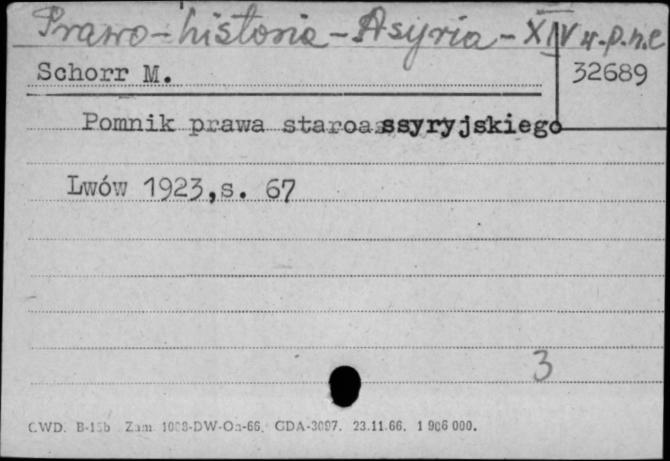 Prawo-historia-Asyria-XIV w.p.n.e
Schorr M.
32689
Pomnik prawa staroassyryjskiego
Lwów 1923,s. 67
3
CWD. B-15b Zam 1098-DW-Oa-66. GDA-3097. 23.11.66. 1 906 000.